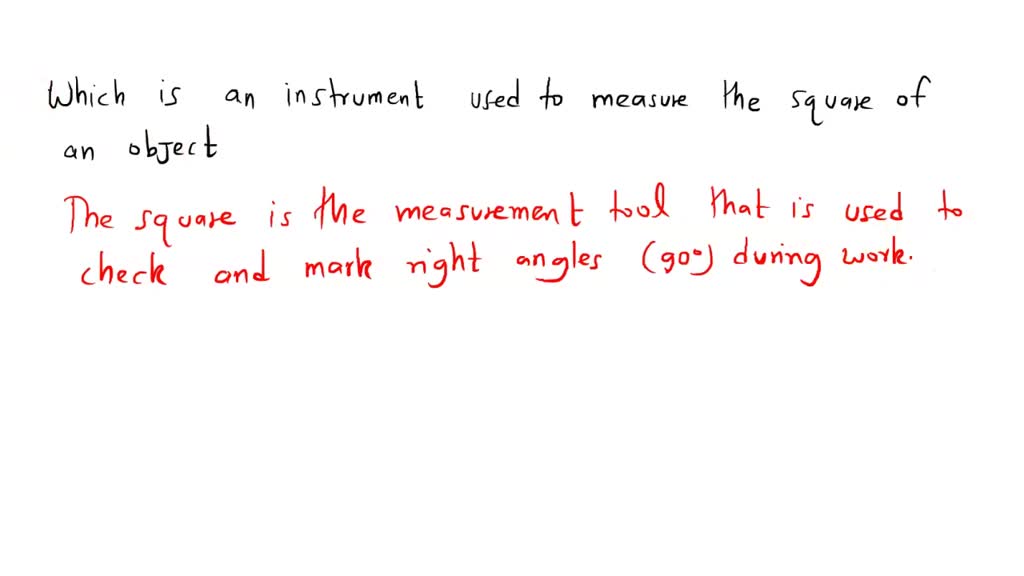 Which is an instrument used to measure the square of
an object
The square is the measurement tool that is used to
check and mark right angles (90°) during work.